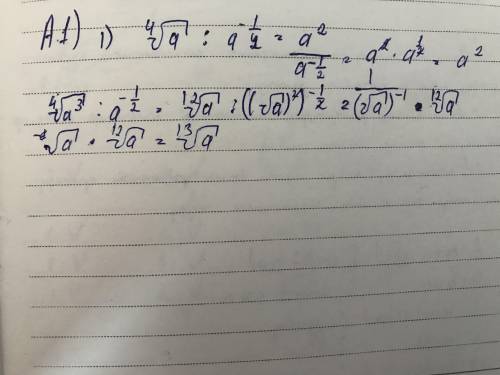 A.1) 1) ⁴√a : a^(-1/2) = a²/a^(-1/2) = a² · a^(1/2) = a²
⁴√a³ : a^(-1/2) = ¹²√a : ((√a)²)^(-1/2) = (√a)⁻¹ · ¹²√a
√a · ¹²√a = ¹³√a